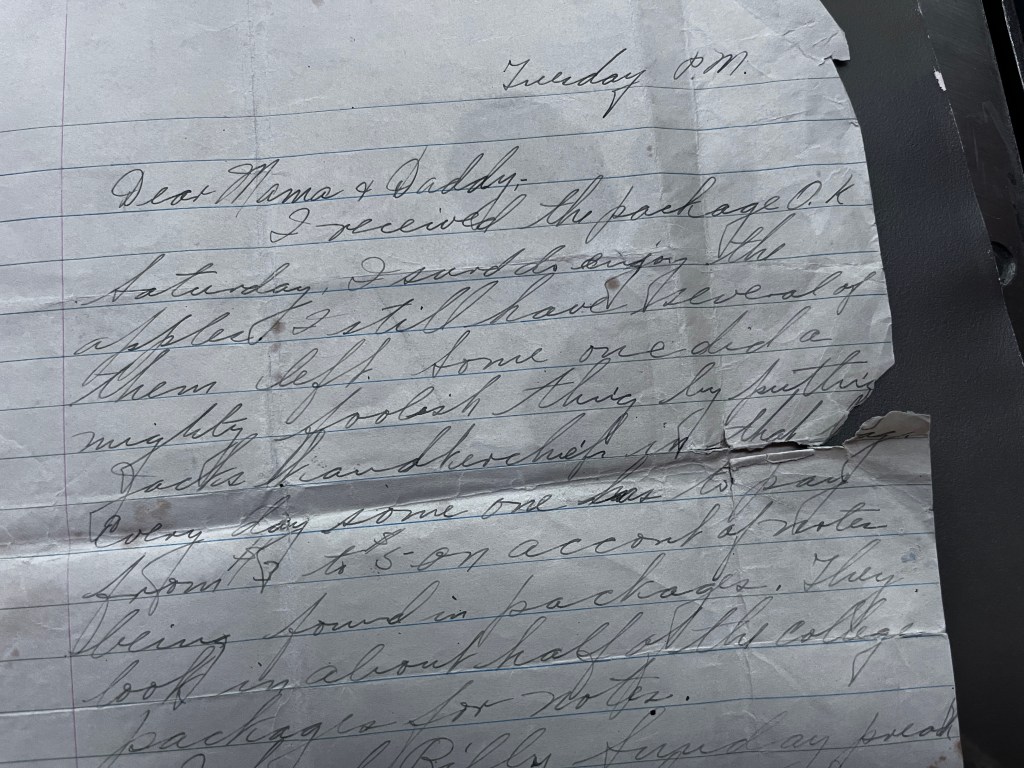 Tuesday P.M.
Dear Mama & Daddy,
I received the package O.K
Saturday, I sure do enjoy the
apples. I still have several of
them left. Some one did a
mighty foolish thing by putting
Jacks Handkerchief in that
Every day some one has to pay
from $3 to $5 on account of notes
being found in packages. They
look in about half of the college
packages for notes.
Billy Sunday preach